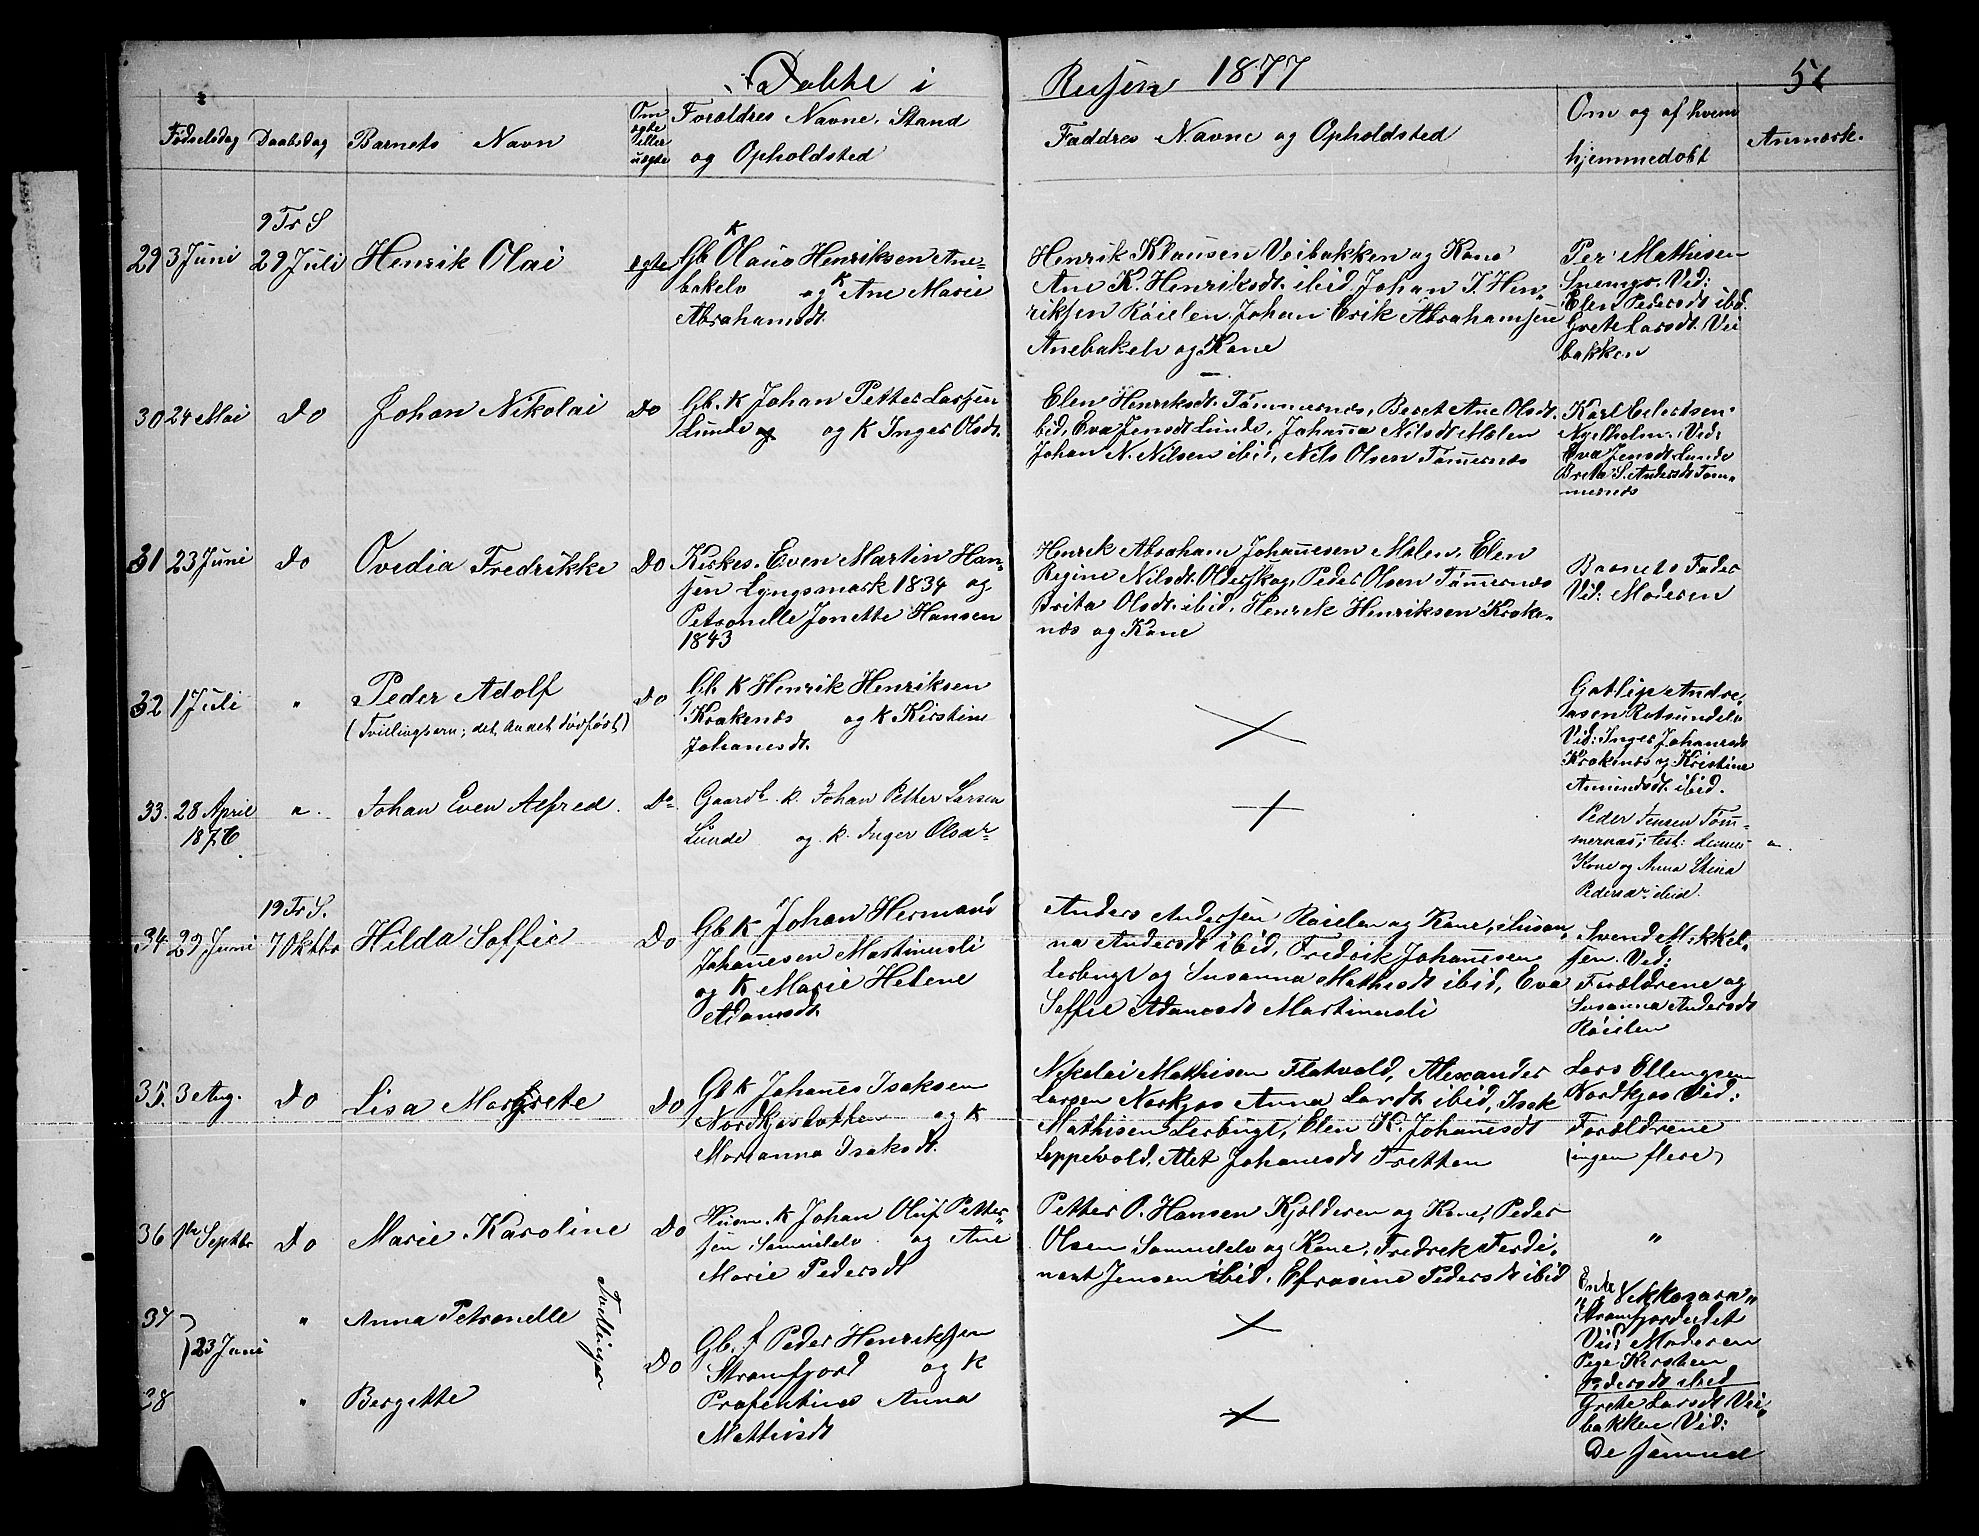 Døbte i Reisen 1877 51
Fødselsdag Daabsdag Barnets Navn Om ægte eller uægte Forældres Navne, Stand
og Opholdsted
Faddres Navne og Opholdsted
Om og af hvem
hjemmedøbt
Anmærk.
9 Tr S
29 3 Juni 29 Juli Henrik Olai ægte Gb. K Olaus Henriksen Ane-
bakelv og K Ane Marie
Abrahamsdt.
Henrik Klausen Veibakken og Kone
Ane K. Henriksdt. ibid, Johan I. Hen-
riksen Röielen, Johan Erik Abrahamsen
Anebakelv og Kone
Per Mathisen
Snemyr. Vid:
Elen Pedersdt ibd.
Grete Larsdt. Vei
bakken
30 24 Mai Do Johan Nikolai Do Gb. K Johan Petter Larsen
Lunde og K Inger Olsdt.
Elen Henriksdt. Tömmernæs, Beret Ane Olsdt.
ibid, Eva Jensdt Lunde, Johanna Nilsdt Mælen
Johan N. Nilsen ibid, Nils Olsen Tömernæs
Karl Eilertsen
Nyelholm. Vid:
Eva Jensdt Lunde
Brita S. Andersdt Töm-
mernæs
31 23 Juni Do Ovedia Fredrikke Do Kirkes. Even Martin Han-
sen Lyngsmark 1834 og
Petronelle Jonette Hansen
1843
Henrik Abraham Johannesen Mælen, Elen
Regine Nilsdt. Olderskog, Peder Olsen Tömernæs
Brita Olsdt. ibid, Henrik Henriksen Krake-
næs og Kone
Barnets Fader
Vid: Moderen
32 1 Juli " Peder Adolf
(Tvillingbarn; det andet dødfødt)
Do Gb. K Henrik Henriksen
Krakenæs og K Kirstine
Johanesdt.
Gotlip Andre-
asen Rotsundelv
Vid: Inger Johanesdt
Krakenæs og Kristine
Amundsdt. ibid.
33. 28 April
1876
" Johan Even Alfred. Do Gaardb. k. Johan Petter Larsen
Lunde og k. Inger Olsdr
Peder Jensen Töm-
mernæs; test: dennes
Kone og Anna Stina
Pedersdr ibid.
19 Tr S.
34 29 Juni 7 Oktbr Hilda Soffie Do Gb K Johan Hermand
Johanesen Martinusli
og K Marie Helene
Adamsdt.
Anders Andersen Röielen og Kone, Susan-
na Andersdt ibid, Fredrik Johanesen
Lerbugt og Susanna Mathisdt ibid, Eva
Soffie Adamsdt Martinusli
Svend Mikkel-
sen. Vid:
Forældrene og
Susanna Andersdt
Röielen
35. 3 Aug. Do Lisa Margrete Do Gb K Johanes Isaksen
Nordkjosbotten og K
Marianna Isaksdt.
Nikolai Mathisen Flatvold, Alexander
Larsen Norkjos Anna Larsdt ibid, Isak
Mathisen Lerbugt, Elen K. Johanesdt
Leppevold, Alet Johanesdt Tretten
Lars Ellengsen
Nordkjos Vid:
Forældrene
(ingen flere)
36 1ste Septbr Do Marie Karoline Do Husm. K Johan Oluf Petter-
sen Samuelelv og Ane
Marie Pedersdt
Petter O. Hansen Kjelderen og Kone, Peder
Olsen Samuelelv og Kone, Fredrek Ferdi-
nant Jensen ibid, Efrasine Pedersdt ibid
"
37 } 23 Juni " Anna Petronelle
Tvillinger
Do Gb. f Peder Henriksen
Strømfjord og K
Profentine Anna
Mathisdt
Vekkosara
Strømfjordeidet
Vid: Moderen
Pege Kirsten
Pedersdt ibid
38 " Bergitte
Grete Larsdt Vei-
bakken Vid:
De samme